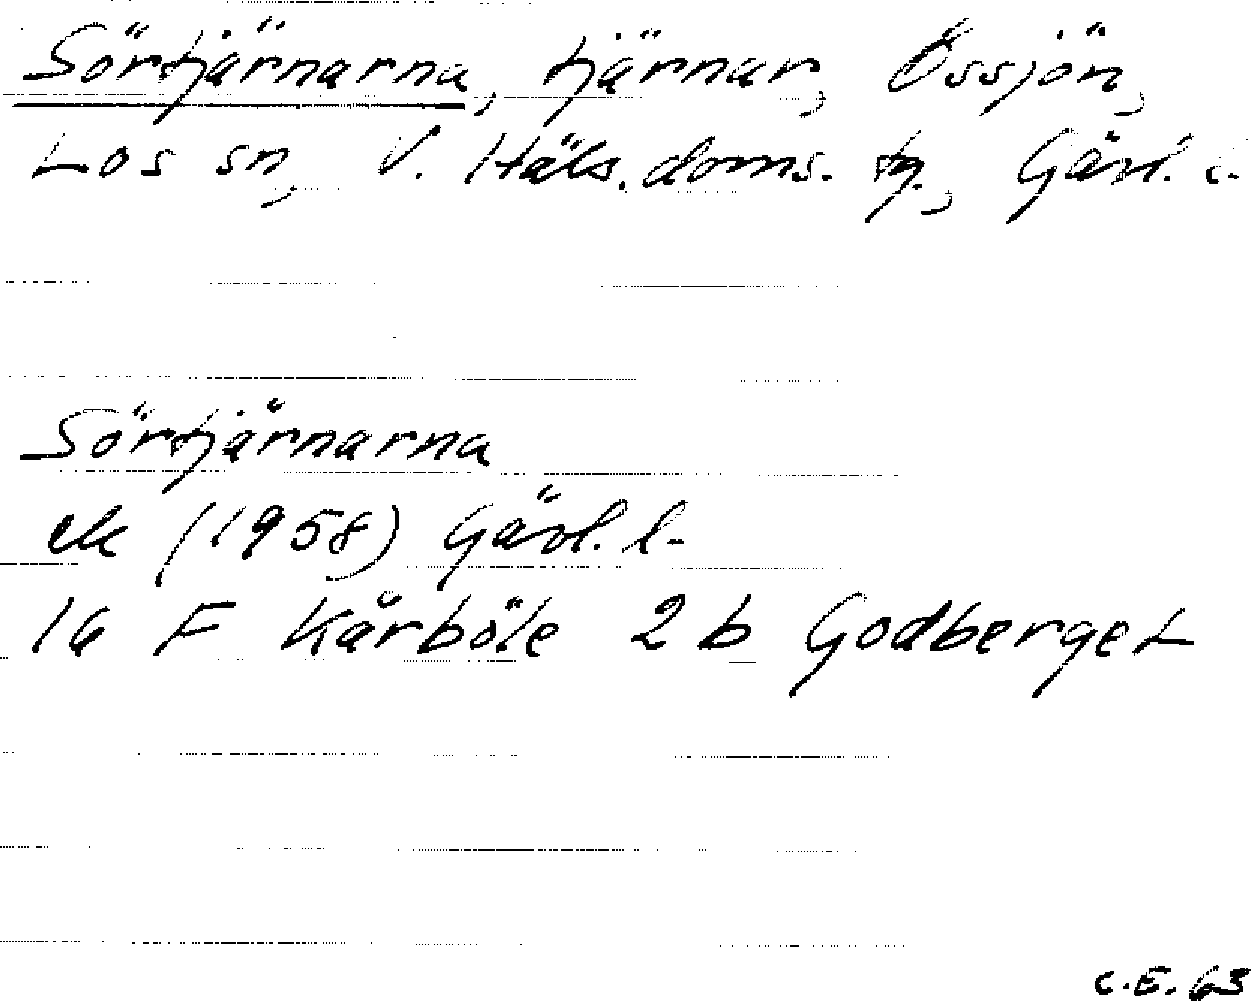 Sörtjärnarna, tjärnar, Össjön,
Los sn, V. Häls. doms. tg., Gävl. l.
Sörtjärnarna
ek (1958) Gävl. l.
16 F Kårböle 2 b Godberget
C.E. 63